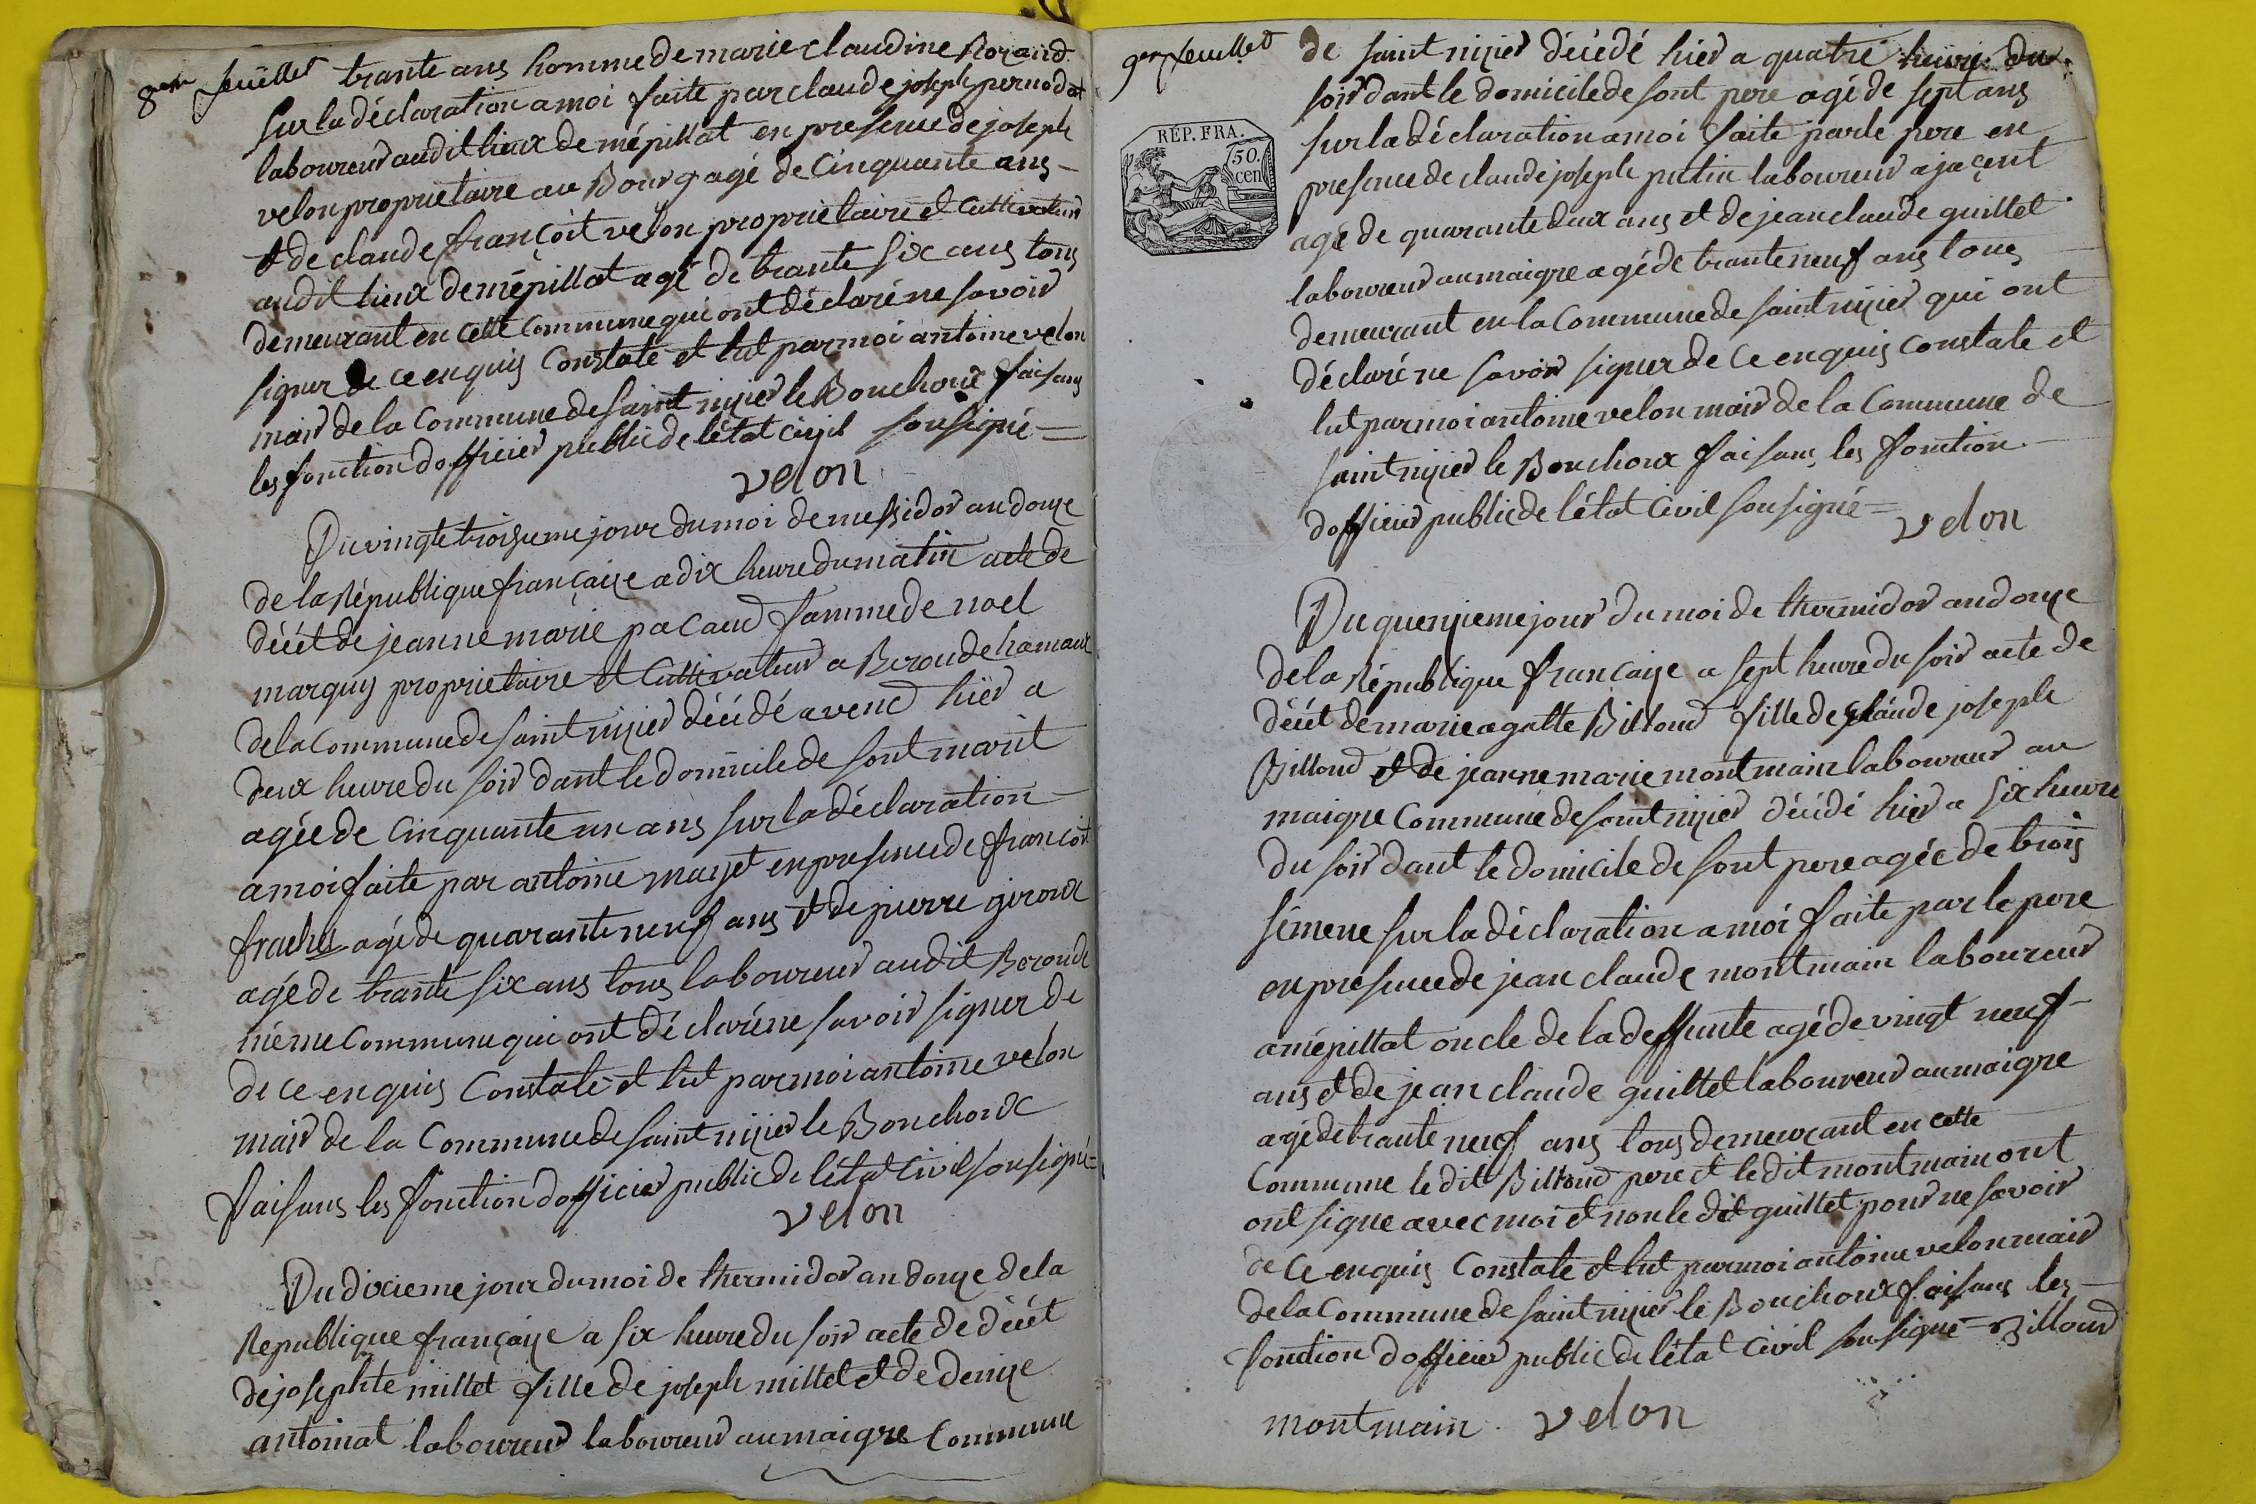 8em feuillet
trante ans homme de marie claudine Morand
sur la déclaration a moi faite par claude joseph pernodat
laboureur audit lieux de mépillat en presence de joseph
velon proprietaire au Bourg agé de Cinquante ans
et de claude françoit velon proprietaire et Cultivateur
audit lieux de mépillat agé de trante six ans tous
demeurant en cette Commune qui ont déclaré ne savoir
signer de ce enquis Constaté et lut par moi antoine velon
mair de la Commune de saint nizier le Bouchoux faisans
les fonction dofficier public de létat civil sousigné
velon
Du vingte troiszieme jour du moi de messidor an douze
de la République françaize a dix heure du matin acte de
décét de jeanne marie pacaud famme de noel
marquis proprietaire et Cultivateur a Beroude hamaux
de la Commune de saint nizier décédé avend hier a
deux heure du soir dant le domicile de sont marit
agée de Cinquante un ans sur la déclaration
a moi faite par antoine mazet en presence de francoit
frachet agé de quarante neuf ans et de pierre giroux
agé de trante six ans tous laboureur audit Beroude
même Commune qui ont déclaré ne savoir signer de
de ce enquis Constaté et lut par moi antoine velon
mair de la Commune de saint nizier le Bouchoux
faisans les fonction dofficier public de létat Civil sousigné
velon
Du dixieme jour du moi de thermidor an douze de la
Republique françaize a six heure du soir acte de décét
de josephte millet fille de joseph millet et de denize
antoinat laboureur laboureur au maigre Commune
9em feuillet
de saint nizier décédé hier a quatre heure du
soir dant le domicile de sont pere agé de sept ans
sur la déclaration a moi faite par le pere en
presence de claude joseph putin laboureur ajaçent
agé de quarante deux ans et de jean claude guillet
laboureur au maigre agé de trante neuf ans tous
demeurant en la Commune de saint nizier qui ont
déclaré ne savoir signer de Ce enquis Constaté et
lut par moi antoine velon mair de la Commune de
saint nizier le Bouchoux faisans les fonction
dofficier public de létat Civil sousigné
velon
RÉP. FRA.
50.
cen
Du quenzieme jour du moi de thermidor an douze
de la République françaize a sept heure du soir acte de
décét de marie agatte Billoud fille de claude joseph
Billoud et de jeanne marie montmain laboureur au
maigre Commune de saint nizier décédé hier a six heure
du soir dant le domicile de sont pere agée de trois
semene sur la déclaration a moi faite par le pere
en presence de jean claude montmain laboureur
a mépillat oncle de la deffunte agé de vingt neuf
ans et de jean claude guillet laboureur au maigre
agé de trante neuf ans tous demeurant en cette
Commune le dit Billoud pere et le dit montmain ont
ont signe avec moi et non le dit guillet pour ne savoir
de Ce enquis Constaté et lut par moi antoine velon mair
de la Commune de saint nizier le Bouchoux faisans les
fonction dofficier public de léta Civil sousigné Billoud
montmain. velon